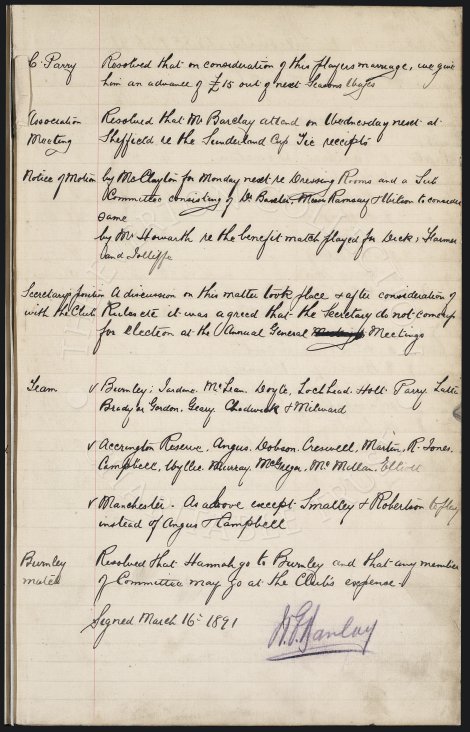 C. Parry Resolved that on consideration of this players marriage, we give
him an advance of £15 out of next Seasons Wages
Association Resolved that Mr Barclay attend on Wednesday next at
Meeting Sheffield re the Sunderland Cup Tie receipts
Notice of Motion by Mr Clayton for Monday next re Dressing Rooms and a Sub
Committee consisting of Dr Baxter, Ramsay & Wilson to consider
same
by Mr Howarth re the benefit match played for Dick, Farmer
and Jolliffe
Secretarys position A discussion on this matter took place & after consideration of
with the Club Rules etc it was agreed that the Secretary do not come up
for election at the Annual General Meetings
Team √ Burnley; Jardine. McLean. Doyle, Lochhead. Holt. Parry. Latta
Brady or Gordon. Geary. Chadwick & Milward
√ Accrington Reserve, Angus. Dobson. Creswell, Martin, R. Jones.
Campbell, Wyllie. Murray. McGregor, McMillan. Elliott
√ Manchester. As above except Smalley & Robertson to play
instead of Angus & Campbell
Burnley Resolved that Hannah go to Burnley and that any member
match of Committee may go at the Club's expense.
Signed March 16th 1891